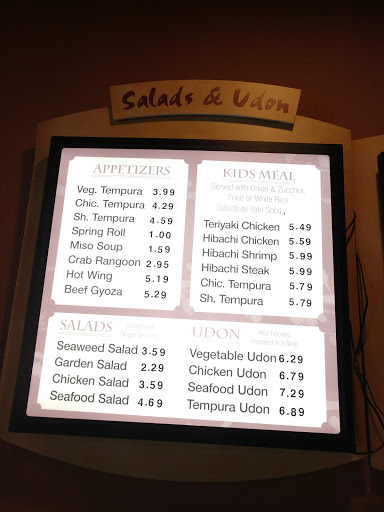 Salads & Udon
APPETIZERS
Veg. Tempura 3.99
Chic. Tempura 4.29
Sh. Tempura 4.59
Spring Roll 1.00
Miso Soup 1.59
Crab Rangoon 2.95
Hot Wing 5.19
Beef Gyoza 5.29
KIDS MEAL
Served with Onion & Zucchini,
Fried or White Rice
Substitute Yaki Soba
Teriyaki Chicken 5.49
Hibachi Chicken 5.59
Hibachi Shrimp 5.99
Hibachi Steak 5.99
Chic. Tempura 5.79
Sh. Tempura 5.79
SALADS
Served with
Ginger Dressing
Seaweed Salad 3.59
Garden Salad 2.29
Chicken Salad 3.59
Seafood Salad 4.69
UDON
Rice Noodles
Prepared in a Soup
Vegetable Udon 6.29
Chicken Udon 6.79
Seafood Udon 7.29
Tempura Udon 6.89